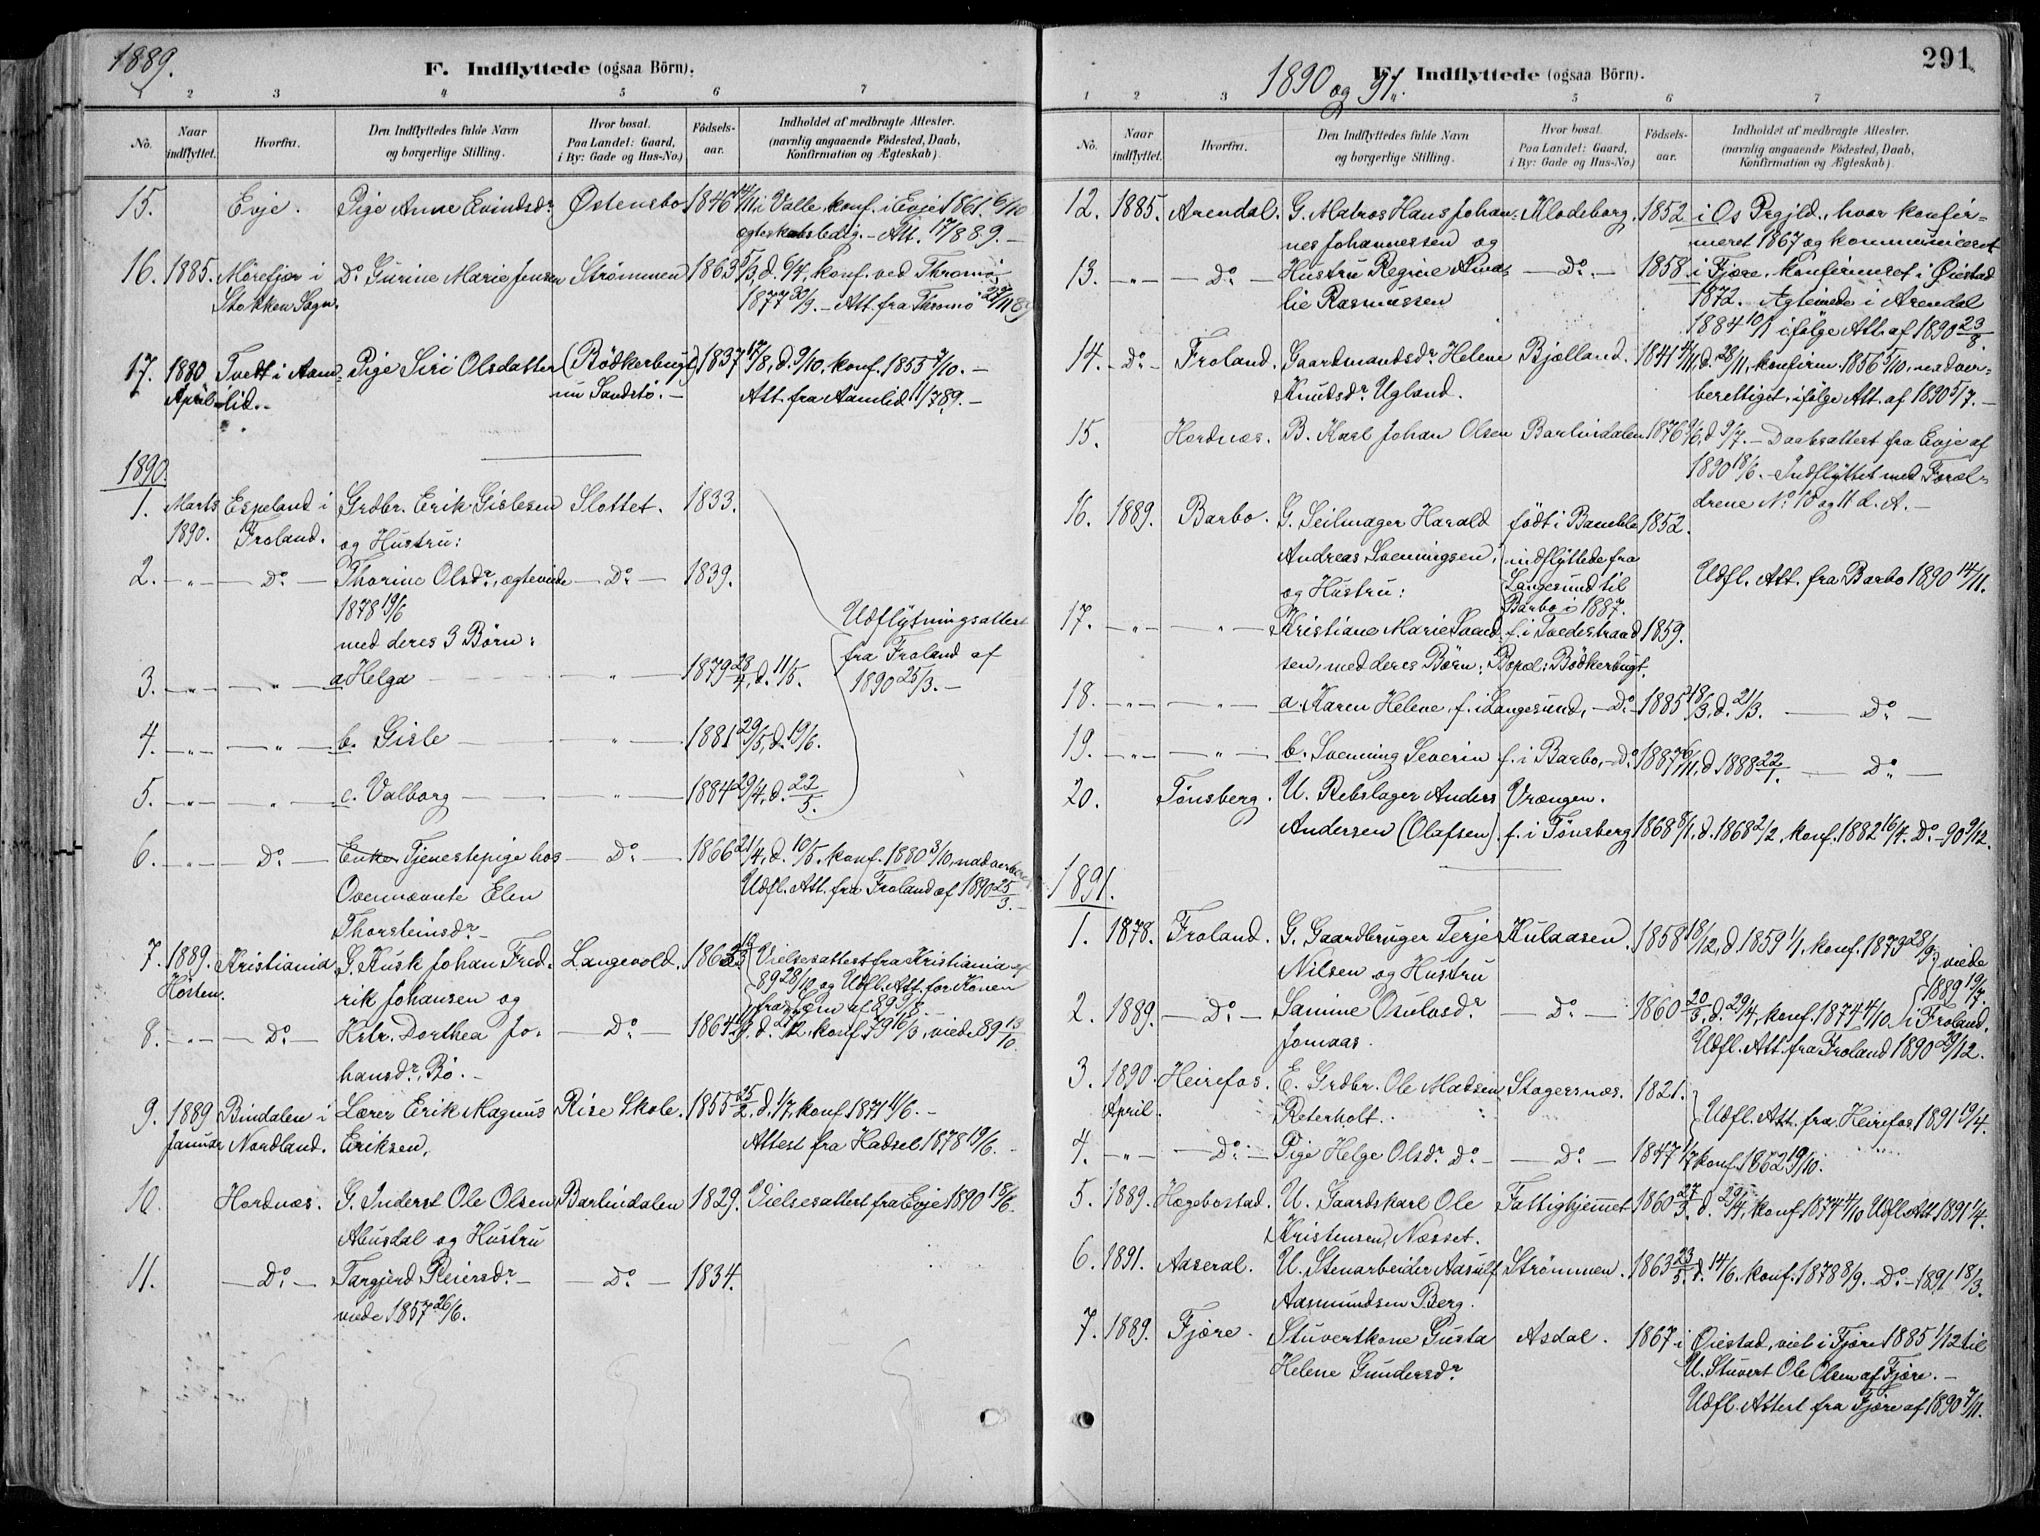 1889.
F. Indflyttede (ogsaa Börn).
1 2 3 4 5 6 7
No. Naar indflyttet. Hvorfra. Den Indflyttedes fulde Navn og borgerlige Stilling. Hvor bosat. Paa Landet: Gaard, i By: Gade og Hus-No.) Födsels-aar. Indholdet af medbragte Attester. (navnlig angaaende Födested, Daab, Konfirmation og Ægteskab).
15. Evje. Pige Anne Evindsdr. Østensbo 1846 14/11 i Valle, konf. i Evje 1861 6/10
ægteskabsledig. – Att. 17/8 89. –
16. 1885. Mørefjær i Do. Gurine Marie Jensen Strømmen 1863 5/3, d. 6/4, konf. ved Thromø
Stokken Sogn. 1877 30/9. – Att. fra Thromø
17. 1880 Tvett i Aam- Pige Siri Olsdatter (Bødkerbugt) 1837 17/8, d. 9/10. konf. 1855 7/10. –
April lid. – nu Sandstø. – Att. fra Aamlid 11/7 89. –
1890.
1. Marts Espeland i Grdbr. Erik Gislesen Slottet. 1833.
1890. Froland. og Hustru:
2. –"– – Do. – Thorine Olsdr., ægteviede – Do. – 1839.
1878 19/6
med deres 3 Børn: Udflytningsattest
3. –"– –"– a Helga " 1879 28/4, d. 11/5. fra Froland af
1890 25/3. –
4. –"– –"– b. Gisle " 1881 29/5, d. 19/6.
5. –"– –"– c. Valborg " 1884 29/4, d. 22/5.
6. –"– Do. – Enke Tjenestepige hos – Do. – 1866 21/4, d. 10/5. konf. 1880 3/10,
Ovennævnte Elen Udfl. Att. fra Froland af 1890 25/3. –
Thorsteinsdr. –
7. 1889. Kristiania G. Kusk Johan Fred- Langevold. Vielsesattest fra Kristiania af
Høsten. rik Johansen og 89 28/10 og Udfl. Att. for Konen
8. –"– – Do. – Hstr. Dorthea Jo- – Do. – 1864 konf. 79 16/3, viede 89 13/10.
hansdr. Bø. –
9. 1889 Bindalen i Lærer Erik Magnus Rise Skole. 1855 25/2. d. 1/7, konf. 1871 11/6. –
Januar Nordland. Eriksen, Attest fra Hadsel 1878 19/6. –
10. Hordnæs. G. Inderst Ole Olsen Barlindalen 1829. Vielsesattest fra Evje 1890 18/6.
Abusdal og Hustru
11. – Do. – Targjerd Reiersdr. – – Do. – 1834.
viede 1857 26/6.
1890 og 91.
F. Indflyttede (ogsaa Börn).
291
1 2 3 5 6 7
No. Naar indflyttet. Hvorfra. Den Indflyttedes fulde Navn og borgerlige Stilling. Hvor bosat. Paa Landet: Gaard, i By: Gade og Hus-No.) Födsels-aar. Indholdet af medbragte Attester. (navnlig angaaende Födested, Daab, Konfirmation og Ægteskab).
12. 1885. Arendal. G. Matros Hans Johan- Klodeborg. 1852 i Os Prgjld., hvor konfir-
nes Johannessen og meret 1867 og kommuniceret
13. –"– – Do. – Hustru Regine – Do. – 1858 i Fjære. Konfirmeret i Øiestad
lie Rasmussen 1872. Ægteviede i Arendal
1884 10/1 ifølge Att. af 1890 23/8.
14. – Do – Froland. Gaardmandsdr. Helene Bjælland. 1841 4/11, d. 28/11, konfirm. 1856 5/10, nadver-
Knudsdr. Ugland. berettiget, ifølge Att. af 1890 5/7. –
15. Hordnæs. B. Karl Johan Olsen Barlindalen 1876 d. 9/7. – Daabsattest fra Evje af
1890 18/6. – Indflyttet med Foræl-
drene No. 10 og 11 d. A. –
16. 1889. Barbo. G. Seilmager Harald født i Bamble 1852.
Andreas Soemingsen, indflyttede fra
og Hustru: Langesund til Udfl. Att. fra Barbo 1890 14/11.
Barbo i 1887.
17. –"– –"– Kristiane Marie f. i Tvedestrand 1859.
sen, med deres Børn: Bopæl: Bødkerbugt.
18. –"– –"– a. Karen Helene, f. i Langesund, – Do – 1885 18/3, d. 21/3. – Do. –
19. –"– –"– b. Soenning Severin f. i Barbo, – Do 1887 d. 1888 22/1. – Do. –
20. Tønsberg. U. Rebslager Anders Vrængen.
Andersen (Olafsen) f. i Tønsberg 1868 8/1, d. 1868 2/2, konf. 1882 16/4. Do – 90 9/12.
1891.
1. 1878. Froland. G. Gaardbruger Terje Kulaasen. 1858 18/12, d. 1859 1/1, konf. 1873 28/9. viede
Nilsen og Hustru 1889 19/7.
2. 1889. – Do. – Samine Osulvsdr. – Do. – 1860 20/3, d. 29/4, konf. 1874 4/10. i Froland.
Jomaas. Udfl. Att. fra Froland 1890 29/12.
3. 1890 Heirefos. E. Grdbr. Ole Madsen Stagersnæs. 1821.
April. Reterholt. Udfl. Att. fra Heirefos 1891 19/4.
4. –"– – Do. – Pige Helge Olsdr. Do. – – Do. – 1847 konf. 1862 19/10.
5. 1889. Hægebostad. U. Gaardskarl Ole Fattighjemmet 1860 27/3. d. 29/4, konf. 1874 4/10 Udfl. Att
Kristensen, Næsset.
6. 1891. Aaseral. U. Stenarbeider Aasulf Strømmen. 1863 23/5. d. 14/6. konf. 1878 8/9. – Do. – 1891 18/3.
Aasmundsen Berg.
7. 1889. Fjære. Stuvertkone Gusta Asdal. 1867 i Øiestad, viet i Fjære 1885 1/12 til
Helene Gundersdr. U. Stuvert Ole Olsen af Fjære. –
Udfl. Attest fra Fjære af 1890 7/11.